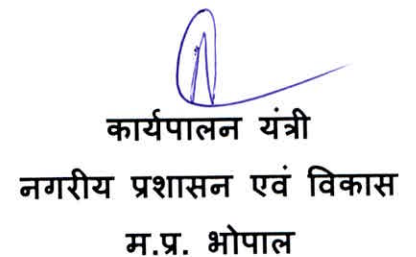 कार्यपालन यंत्री
नगरीय प्रशासन एवं विकास
म.प्र. भोपाल